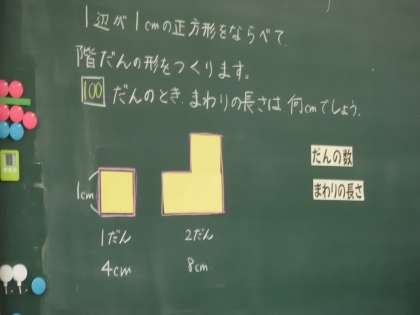 1辺が1cmの正方形をならべて、
階だんの形をつくります。
100だんのとき、まわりの長さは何cmでしょう。
だんの数
まわりの長さ
1cm
1だん
2だん
4cm
8cm